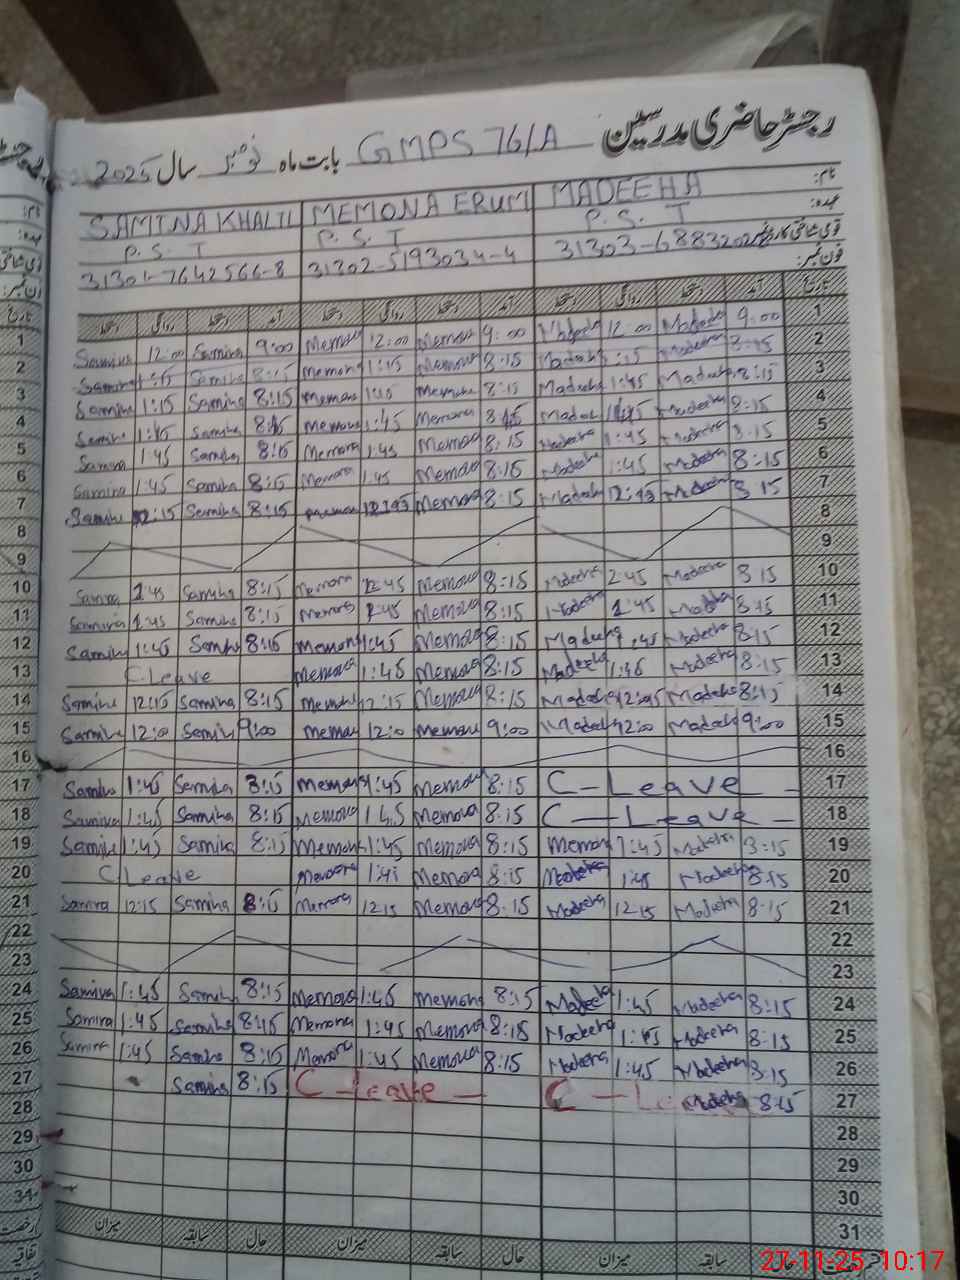 رجسٹر حاضری مدرسین GMPS 76/A بابت ماہ نومبر سال 2025
نام: MADEEHA MEMONA ERUM SAMINA KHALIL
عہدہ: P.S.T P.S.T P.S.T
قومی شناختی کارڈ 31303-6883 31302-5193034-4 31301-7642566-8
فون نمبر:
تاریخ آمد دستخط روانگی دستخط آمد دستخط روانگی دستخط آمد دستخط روانگی دستخط
1 Samina 12:00 Samina 9:00 Memona 12:00 Memona 9:00 Madeeha 12:00 Madeeha 9:00 1
2 Samina 1:15 Samina 8:15 Memona 1:15 Memona 8:15 Madeeha :15 Madeeha 8:15 2
3 Samina 1:15 Samina 8:15 Memona 1:15 Memona 8:15 Madeeha 1:45 Madeeha 8:15 3
4 Samina 1:45 Samina 8:15 Memona 1:45 Memona 8:15 Madeeha Madeeha 8:15 4
5 Samina 1:45 Samina 8:15 Memona 1:45 Memona 8:15 Madeeha 1:45 Madeeha 8:15 5
6 Samina 1:45 Samina 8:15 Memona 1:45 Memona 8:15 Madeeha 1:45 Madeeha 8:15 6
7 Samina 12:15 Samina 8:15 Memona Memona 8:15 Madeeha Madeeha 8:15 7
8 8
9 9
10 Samina 1:45 Samina 8:15 Memona Memona 8:15 Madeeha Madeeha 8:15 10
11 Samina 1:45 Samina 8:15 Memona 1:45 Memona 8:15 Madeeha 1:45 Madeeha 8:15 11
12 Samina 1:45 Samina 8:15 Memona 1:45 Memona 8:15 Madeeha 1:45 Madeeha 8:15 12
13 C.Leave Memona 1:45 Memona 8:15 Madeeha 1:45 Madeeha 8:15 13
14 Samina 12:15 Samina 8:15 Memona 12:15 Memona 8:15 Madeeha Madeeha 8:15 14
15 Samina 12:00 Samina 9:00 Memona 12:0 Memona 9:00 Madeeha 12:00 Madeeha 9:00 15
16 16
17 Samina 1:45 Samina 8:15 Memona 1:45 Memona 8:15 C-Leave - 17
18 Samina 1:45 Samina 8:15 Memona 1:45 Memona 8:15 C-Leave - 18
19 Samina 1:45 Samina 8:15 Memona 1:45 Memona 8:15 Memona 1:45 Madeeha 8:15 19
20 C Leave Memona 1:45 Memona 8:15 Madeeha 1:45 Madeeha 8:15 20
21 Samina 12:15 Samina 8:15 Memona 12:15 Memona 8:15 Madeeha 12:15 Madeeha 8:15 21
22 22
23 23
24 Samina 1:45 Samina 8:15 Memona 1:45 Memona 8:15 Madeeha 1:45 Madeeha 8:15 24
25 Samina 1:45 Samina 8:15 Memona 1:45 Memona 8:15 Madeeha 1:45 Madeeha 8:15 25
26 Samina 1:45 Samina 8:15 Memona 1:45 Memona 8:15 Madeeha 1:45 Madeeha 8:15 26
27 Samina 8:15 C-Leave - C-Le Madeeha 8:15 27
28 28
29 29
30 30
31 31
حال سابقہ میزان حال سابقہ میزان حال سابقہ میزان
27-11-25 10:17